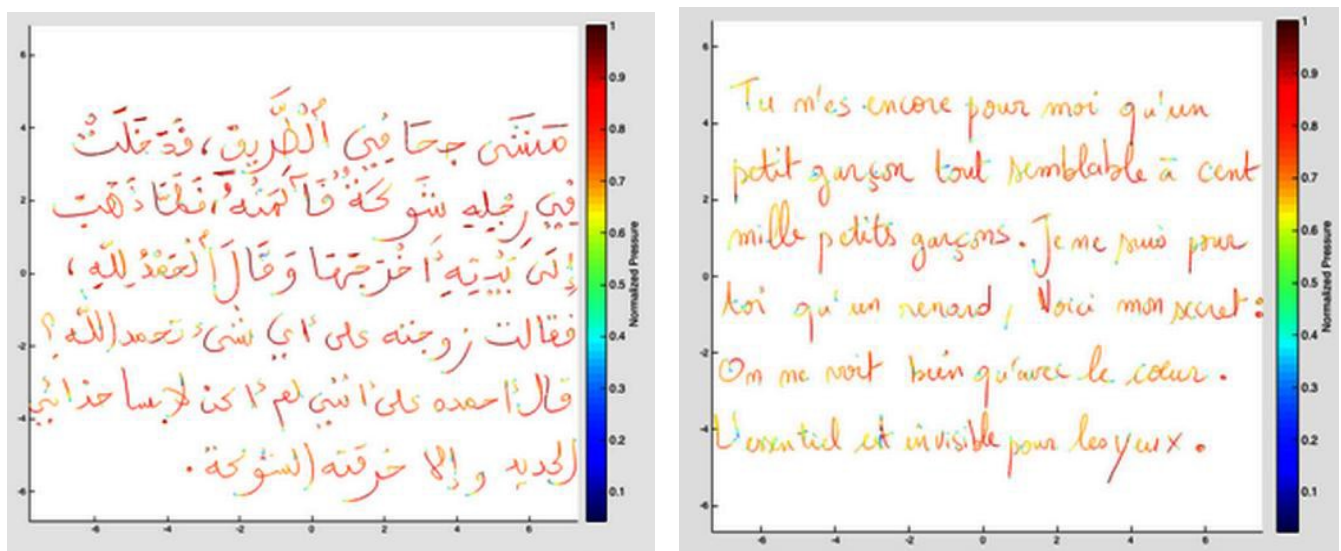 مَشَى جحَا فِي ٱلْطَّرِيق، فَدَخَلَتْ
فِي رجْلِه شَوكَةٌ فَآلَمَتْهُ، فَلَمَّا ذَهَبَ
إِلَى بَيْتِهِ أَخْرَجَهَا وَقَالَ أَلْحَمْدُ لِلَّهِ،
فقالت زوجته على أي شيء تحمد الله؟
قال أحمده على أنني لم أكن لابسا حذائي
الجديد وإلا خرقته الشوكة.
6
4
2
0
-2
-4
-6
-6 -4 -2 0 2 4 6
1
0.9
0.8
0.7
0.6
0.5
0.4
0.3
0.2
0.1
Normalized Pressure
Tu n'es encore pour moi qu'un
petit garçon tout semblable à cent
mille petits garçons. Je ne suis pour
toi qu'un renard, Voici mon secret :
On ne voit bien qu'avec le cœur.
L'essentiel est invisible pour les yeux.
6
4
2
0
-2
-4
-6
-6 -4 -2 0 2 4 6
1
0.9
0.8
0.7
0.6
0.5
0.4
0.3
0.2
0.1
Normalized Pressure